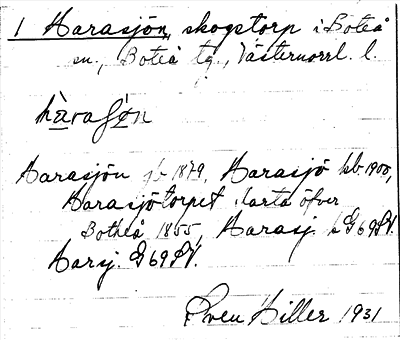 1 Harasjön, skogstorp i Boteå
sn., Boteå tg., Västernorrl. l.
hàraʃøn
Harasjön jb 1879, Harasjö kb 1900,
Harasjötorpet karta öfver
Botheå 1855, Harasj. k G69SV.
Harsj. G69SV.
Sven Hiller 1931